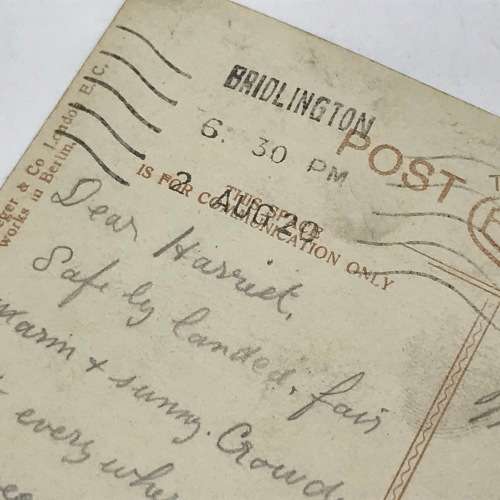 BRIDLINGTON
6. 30 PM
2 AUG 20
POST
THIS SPACE
IS FOR COMMUNICATION ONLY
& Co London E.C.
works in Berlin.
Dear Harriet,
Safely landed, fair
warm & sunny. Crowd
every whe